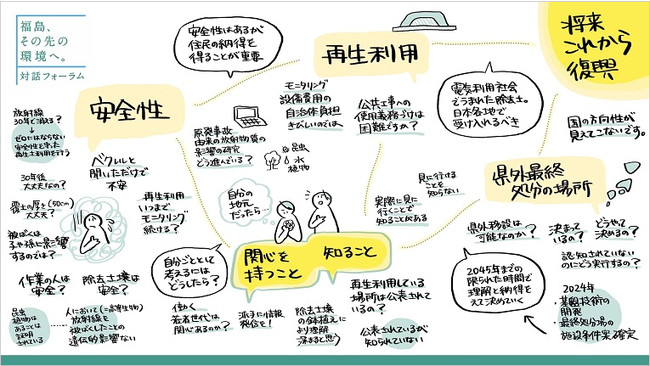 福島、
その先の
環境へ。
対話フォーラム
安全性はあるが
住民の納得を
得ることが重要
再生利用
将来
これから
復興
放射線
30年で消える?
→ゼロにはならない
安全性を守った
再生土利用を行う
安全性
モニタリング
設備費用の
自治体負担
きびしいのでは、
公共工事への
使用義務づけは
困難だろうか?
電気利用社会
でうまれた除去土。
日本各地で
受け入れるべき
国の方向性が
見えてこないです。
原発事故
由来の放射物質の
影響の研究
どう進んでいる?
昆虫
水
植物
ベクレルと
聞いただけで
不安
30年後
大丈夫なの?
覆土の厚さ(50cm)
大丈夫?
被ばくは
子や孫に影響
するのでは?
再生利用
いつまで
モニタリング
続ける?
自分の
地元
だったら…
実際に見に
行くことを
知ることがある
見に行ける
ことを
知らない
県外最終
処分の場所
県外移設は
可能なのか?
決まって
いるの?
どうやって
決めるの?
認知されていない
のにどう実行するの?
作業の人は
安全?
除去土壌は
安全?
自分ごととして
考えるには
どうしたら?
関心を
持つこと
知ること
再生利用している
場所は公表されて
いるの?
公表されているが、
知られていない
2045年までの
限られた時間で
理解と納得を
えて決めていく
2024年
・減容技術の
開発
・最終処分場の
施設条件案確定
昆虫
植物は
あることは
証明
されている
人において(=高等生物)
放射線を
被ばくしたことの
遺伝的影響ない
働く
若者世代は
関心あるのか?
派手に情報
発信を!
除去土壌
の鉢植えに
より理解
深まると思う